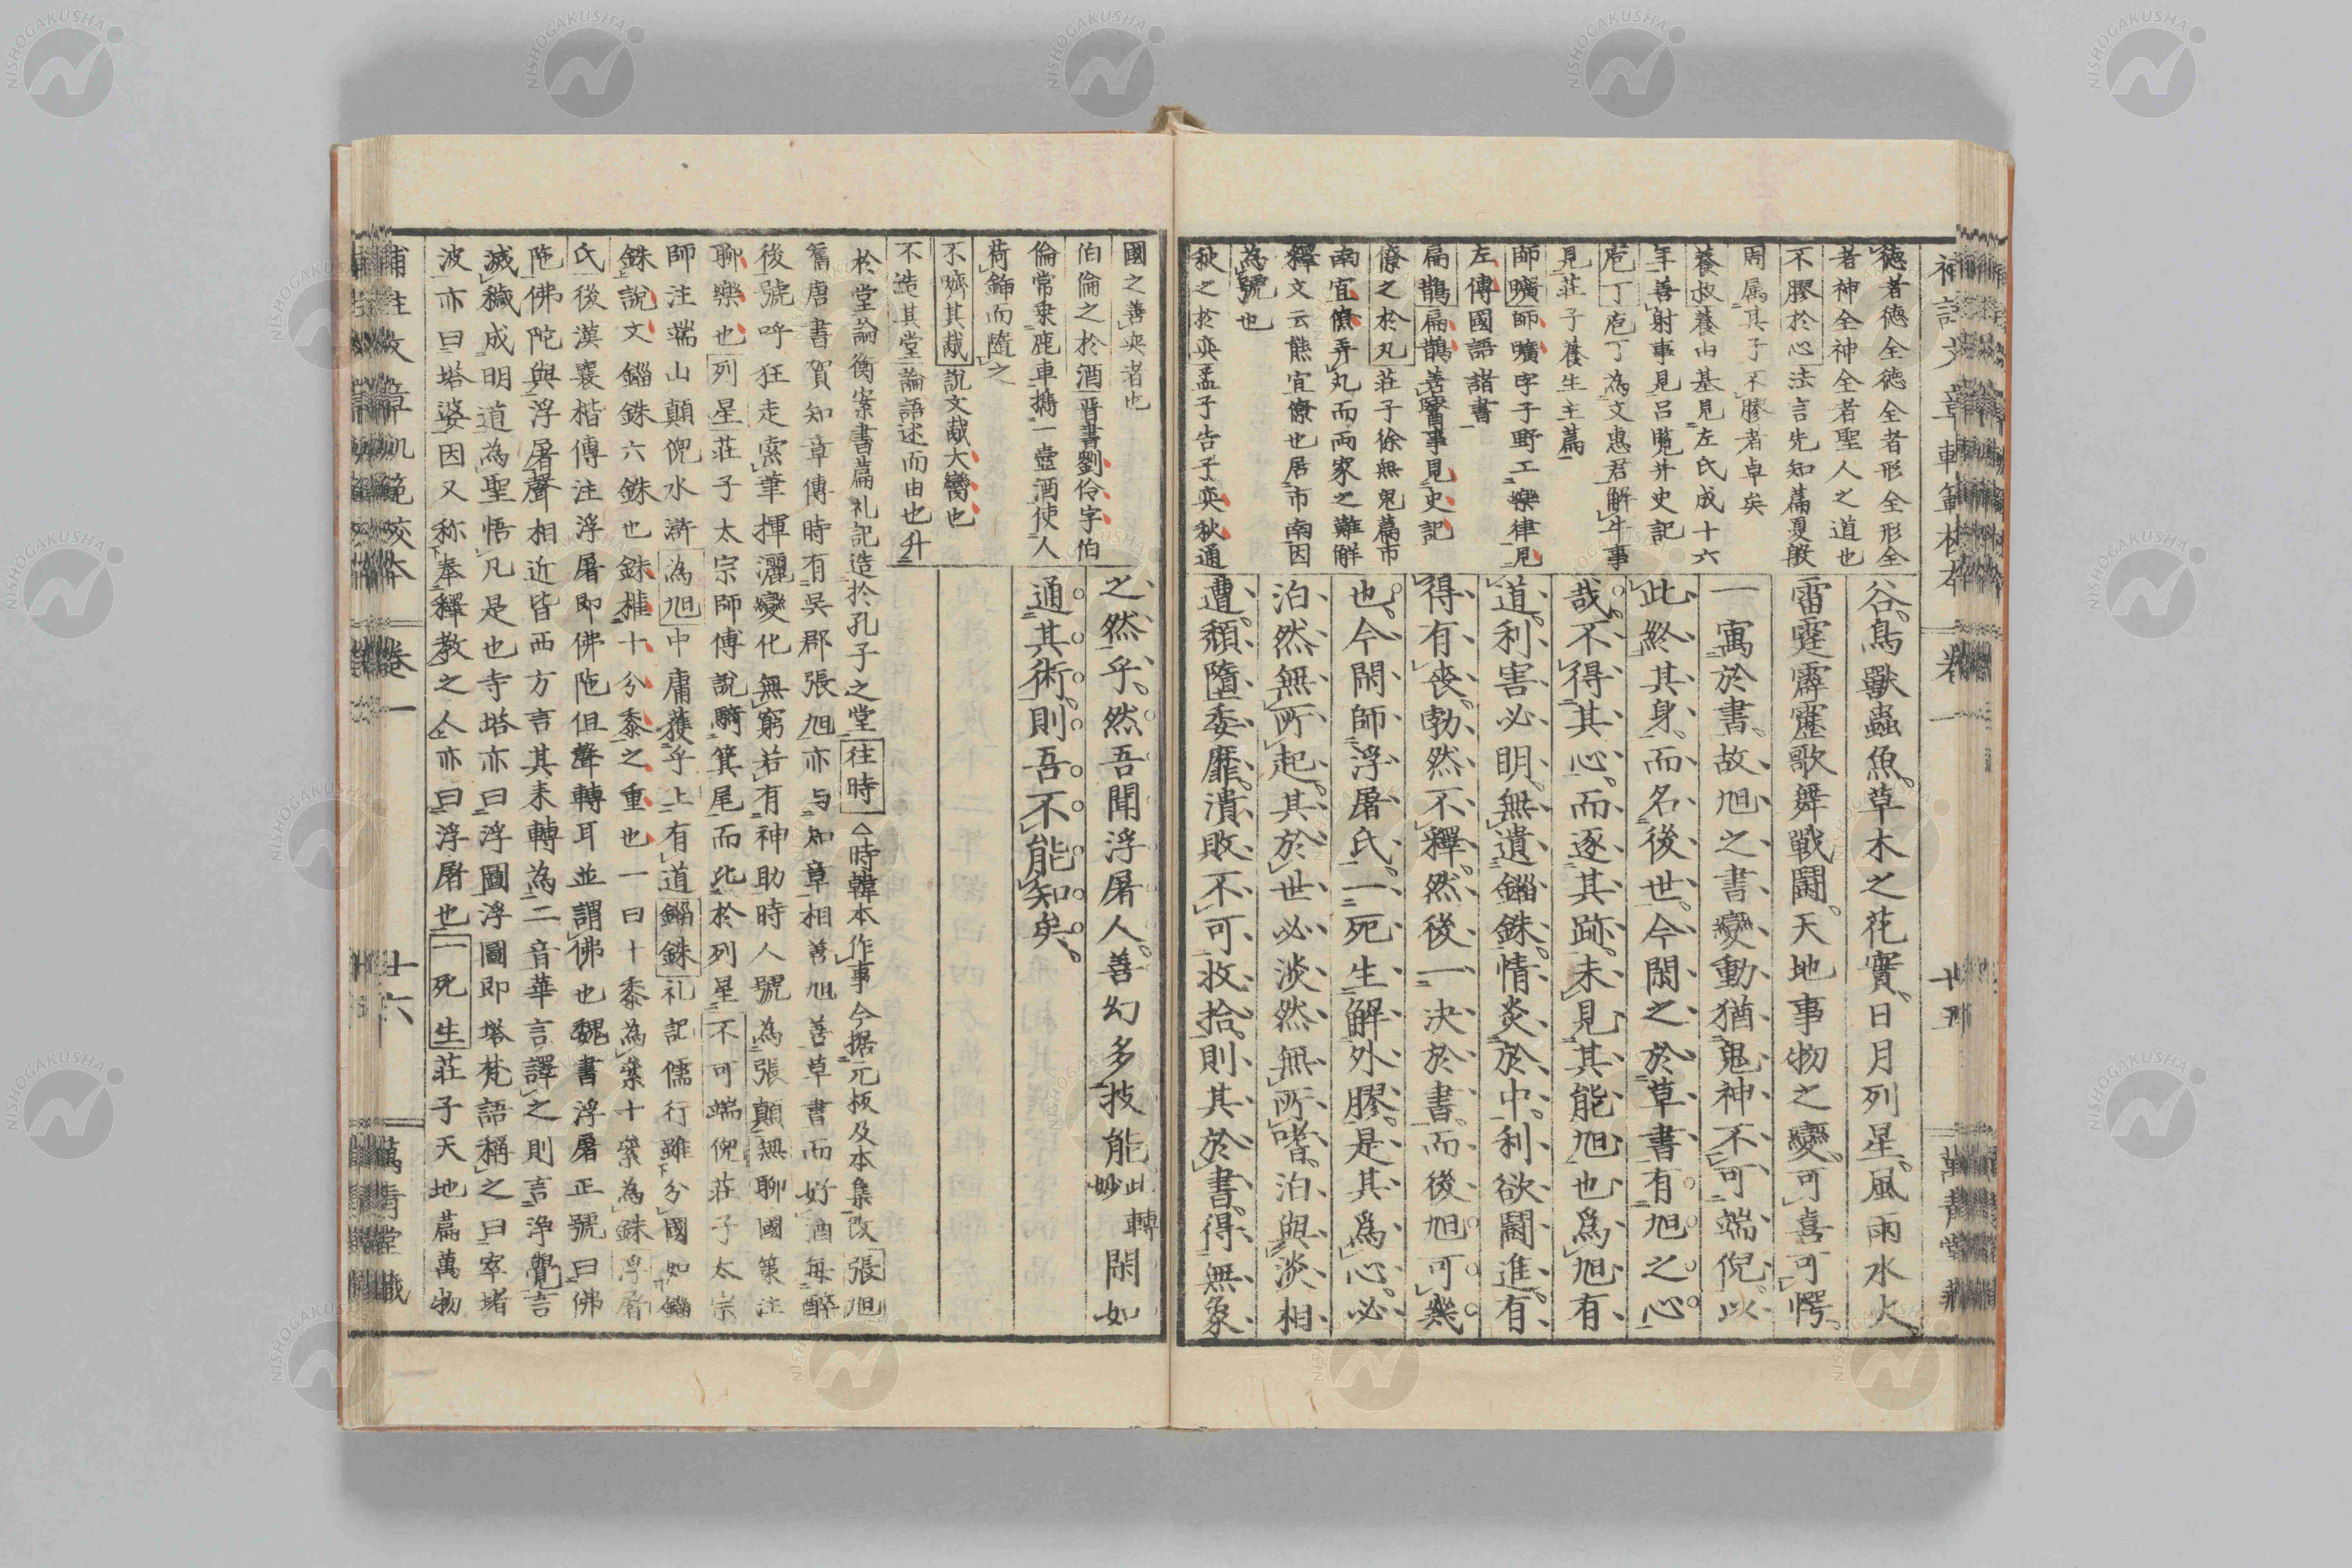 德者德全德全者形全形全
者神全神全者聖人之道也
不膠於心法言先知篇夏殷
周属其子不膠者卓矣
養叔養由基見左氏成十六
年善射事見呂覧并史記
庖丁庖丁為文惠君解牛事
見莊子養生主篇
師曠師曠字子野工樂律見
左傳國語諸書
扁鵲扁鵲善醫事見史記
僚之於丸莊子徐無鬼篇市
南宜僚弄丸而兩家之難解
釋文云熊宜僚也居市南因
為號也
秋之於奕孟子告子奕秋通
谷鳥獸蟲魚草木之花實日月列星風雨水火
雷霆霹靂歌舞戰鬪天地事物之變可喜可愕
一寓於書故旭之書變動猶鬼神不可端倪以
此終其身而名後世今閑之於草書有旭之心
哉不得其心而逐其跡未見其能旭也爲旭有
道利害必明無遺錙銖情炎於中利欲鬪進有
得有喪勃然不釋然後一決於書而後旭可幾
也今閑師浮屠氏一死生解外膠是其爲心必
泊然無所起其於世必淡然無所嗜泊與淡相
遭頹墮委靡潰敗不可收拾則其於書得無象
國之善奕者也
伯倫之於酒晋書劉伶字伯
倫常乘鹿車携一壺酒使人
荷鍤而隨之
不嚌其胾說文胾大臠也
不造其堂論語述而由也升
之然乎然吾聞浮屠人善幻多技能此轉妙閑如
通其術則吾不能知矣
於堂論衡案書篇礼記造於孔子之堂往時今時韓本作事今据元板及本集改張旭
舊唐書賀知章傳時有吳郡張旭亦与知章相善旭善草書而好酒每醉
後號呼狂走索筆揮灑變化無窮若有神助時人號為張顛無聊國策注
聊樂也列星莊子太宗師傳說騎箕尾而比於列星不可端倪莊子太宗
師注端山顛倪水滸為旭中庸蒦乎上有道錙銖礼記儒行雖分國如錙
銖說文錙銖六銖也銖權十分黍之重也一曰十黍為絫十絫為銖浮屠
氏後漢襄楷傳注浮屠即佛陁但聲轉耳並謂佛也魏書浮屠正號曰佛
陁佛陀與浮屠聲相近皆西方言其來轉為二音華言譯之則言淨覺言
滅穢成明道為聖悟凡是也寺塔亦曰浮圖浮圖即塔梵語稱之曰窣堵
波亦曰塔婆因又称奉釋教之人亦曰浮屠也一死生莊子天地篇萬物
補註文章軌範校本 卷一 廿六 萬青堂藏